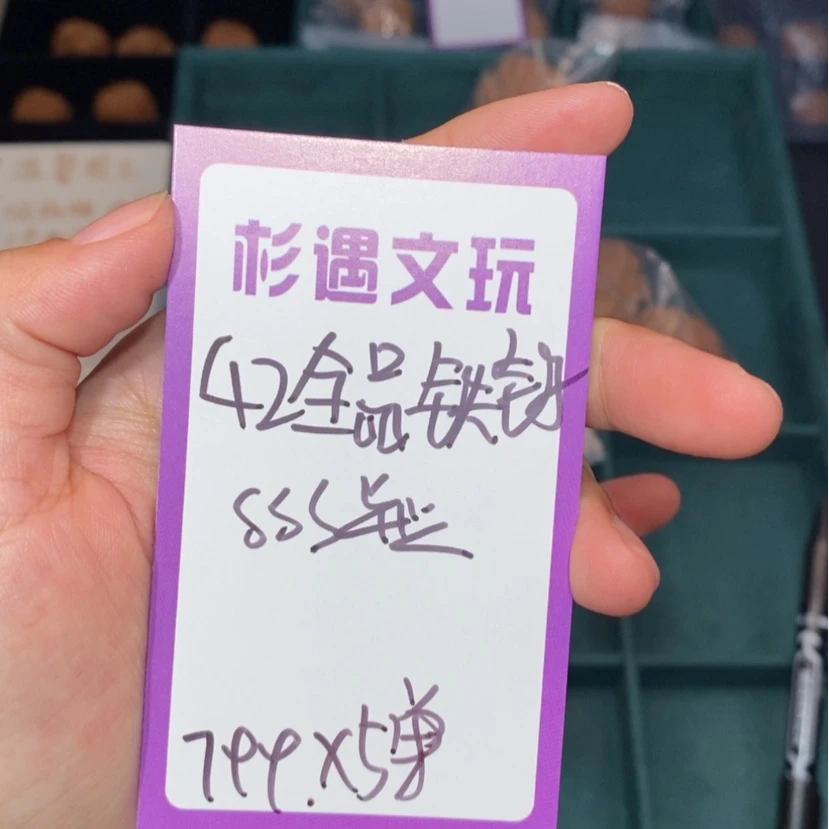 杉遇文玩
42全品铁锈
SSS
799.X5单